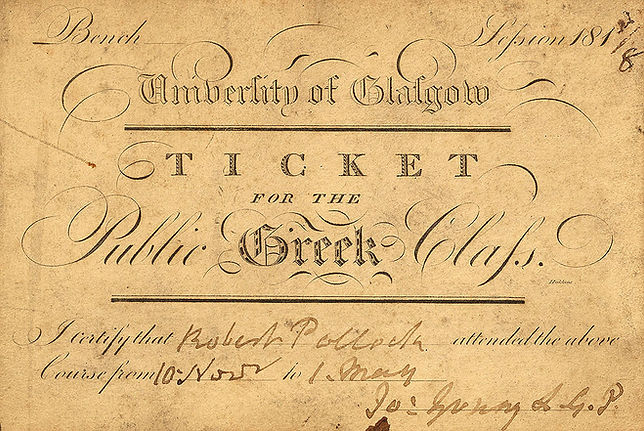 Bench Seſsion 181
Univerſity of Glaſgow
TICKET
FOR THE
Public Greek Claſs.
I certify that Robert Pollock attended the above
Course from 10 Novr to 1. May
Jo: Young L. G. P.